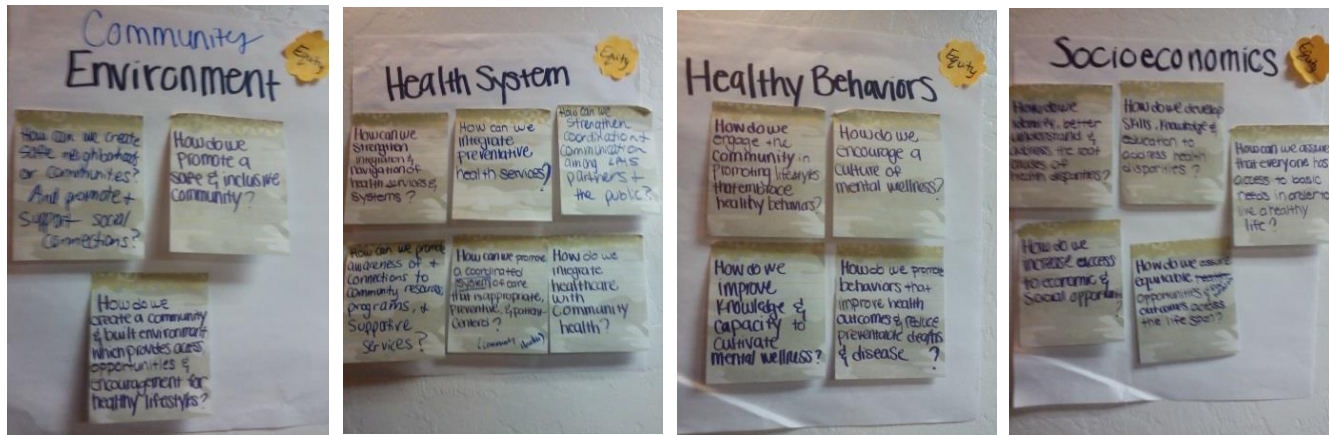 Community
Environment
Equity
How can we create
safe neighborhoods
or communities?
And promote +
support social
connections?
How do we
promote a
safe & inclusive
community?
How do we
create a community
& built environment
which provides access
opportunities &
encouragement for
healthy lifestyles?
Health System
Equity
How can we
strengthen
integration &
navigation of
health services &
systems?
How can we
integrate
preventative
health services?
How can we
strengthen
coordination +
communication
among
partners +
the public?
How can we promote
awareness of +
connections to
community resources,
programs, &
supportive
services?
How can we promote
a coordinated
system of care
that is appropriate,
preventive, & patient-
centered?
How do we
integrate
healthcare
with
community
health?
Healthy Behaviors
Equity
How do we
engage the
community in
promoting lifestyles
that embrace
healthy behaviors?
How do we
encourage a
culture of
mental wellness?
How do we
improve
knowledge &
capacity to
cultivate
mental wellness?
How do we promote
behaviors that
improve health
outcomes & reduce
preventable deaths
& disease?
Socioeconomics
Equity
How do we
identify, better
understand &
address the root
causes of
health disparities?
How do we develop
skills, knowledge &
education to
address health
disparities?
How can we assure
that everyone has
access to basic
needs in order to
live a healthy
life?
How do we
increase access
to economic &
social opportunity?
How do we assure
equitable
opportunities
outcomes across
the life span?